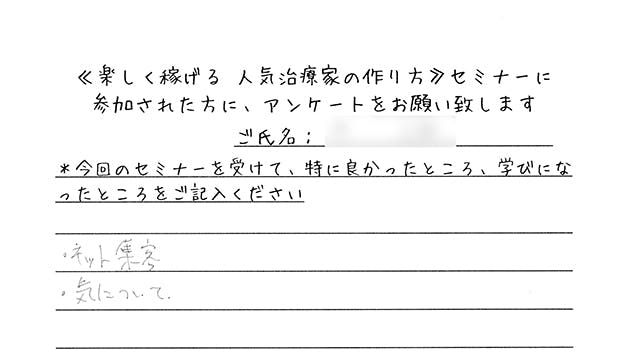 ≪楽しく稼げる 人気治療家の作り方≫セミナーに
参加された方に、アンケートをお願い致します
ご氏名：
*今回のセミナーを受けて、特に良かったところ、学びにな
ったところをご記入ください
・ネット集客
・気について.